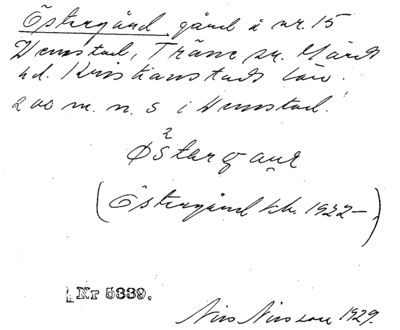 Östergård gård i nr. 15
Vemstad, Träne sn. Gärds
hd. Kristianstads län.
200 m. n. S i Vemstad.
Østargaur
(Östergård kb. 1922-)
Nr 5339.
Nils Nilsson 1929.